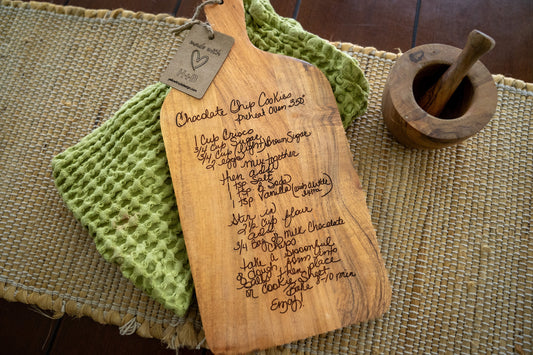 made with
Chocolate Chip Cookies
preheat oven 350°
1 Cup Crisco
3/4 Cup Sugar
3/4 Cup (light) Brown Sugar
2 eggs mix together
then add
1 tsp Salt
1 tsp B Soda
1 tsp Vanilla
Stir in
2 1/2 cup flour
3/4 Milk Chocolate
Chips
take a spoonful
of dough form into
balls then place
on cookie sheet
Bake 8-10 min
Enjoy!